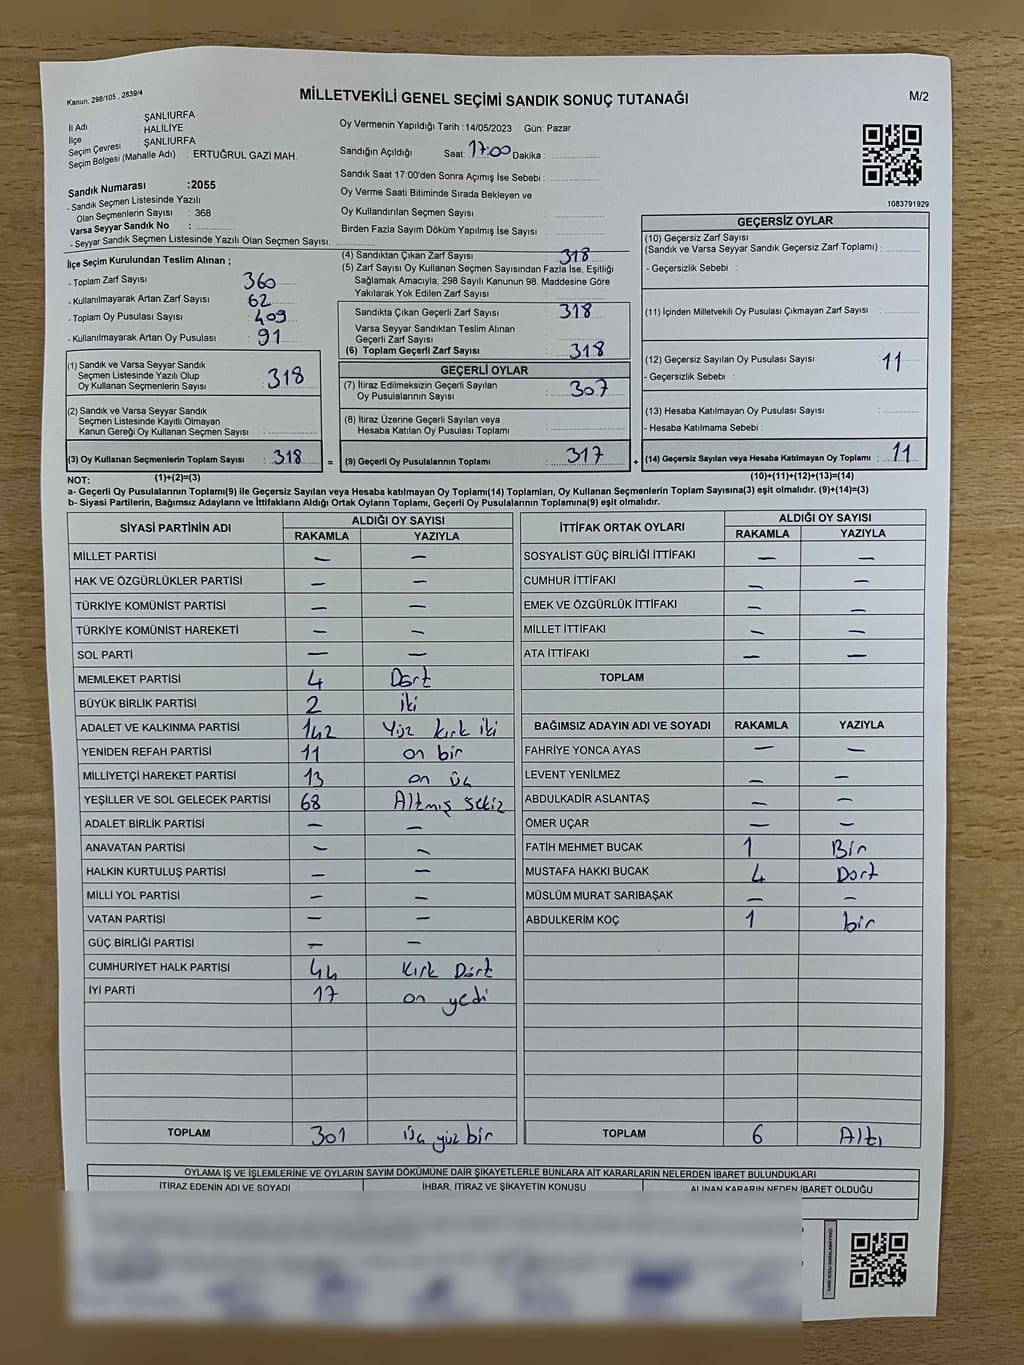 Kanun: 298/105 , 2839/4
MİLLETVEKİLİ GENEL SEÇİMİ SANDIK SONUÇ TUTANAĞI
M/2
İl Adı : ŞANLIURFA
İlçe : HALİLİYE
Seçim Çevresi : ŞANLIURFA
Seçim Bölgesi (Mahalle Adı) : ERTUĞRUL GAZİ MAH.
Sandık Numarası :2055
- Sandık Seçmen Listesinde Yazılı
Olan Seçmenlerin Sayısı : 368
Varsa Seyyar Sandık No :
- Seyyar Sandık Seçmen Listesinde Yazılı Olan Seçmen Sayısı:
Oy Vermenin Yapıldığı Tarih :14/05/2023 Gün: Pazar
Sandığın Açıldığı Saat: 17:00 Dakika :
Sandık Saat 17:00'den Sonra Açımış İse Sebebi :
Oy Verme Saati Bitiminde Sırada Bekleyen ve
Oy Kullandırılan Seçmen Sayısı :
Birden Fazla Sayım Döküm Yapılmış İse Sayısı :
1083791929
İlçe Seçim Kurulundan Teslim Alınan ;
- Toplam Zarf Sayısı : 360
- Kullanılmayarak Artan Zarf Sayısı : 62
- Toplam Oy Pusulası Sayısı : 409
- Kullanılmayarak Artan Oy Pusulası : 91
(1) Sandık ve Varsa Seyyar Sandık
Seçmen Listesinde Yazılı Olup
Oy Kullanan Seçmenlerin Sayısı : 318
(2) Sandık ve Varsa Seyyar Sandık
Seçmen Listesinde Kayıtlı Olmayan
Kanun Gereği Oy Kullanan Seçmen Sayısı :
(3) Oy Kullanan Seçmenlerin Toplam Sayısı : 318
(1)+(2)=(3)
(4) Sandıktan Çıkan Zarf Sayısı : 318
(5) Zarf Sayısı Oy Kullanan Seçmen Sayısından Fazla İse, Eşitliği
Sağlamak Amacıyla; 298 Sayılı Kanunun 98. Maddesine Göre
Yakılarak Yok Edilen Zarf Sayısı :
Sandıkta Çıkan Geçerli Zarf Sayısı : 318
Varsa Seyyar Sandıktan Teslim Alınan
Geçerli Zarf Sayısı :
(6) Toplam Geçerli Zarf Sayısı : 318
GEÇERLİ OYLAR
(7) İtiraz Edilmeksizin Geçerli Sayılan
Oy Pusulalarının Sayısı : 307
(8) İtiraz Üzerine Geçerli Sayılan veya
Hesaba Katılan Oy Pusulası Toplamı :
= (9) Geçerli Oy Pusulalarının Toplamı : 317
GEÇERSİZ OYLAR
(10) Geçersiz Zarf Sayısı
(Sandık ve Varsa Seyyar Sandık Geçersiz Zarf Toplamı) :
- Geçersizlik Sebebi :
(11) İçinden Milletvekili Oy Pusulası Çıkmayan Zarf Sayısı :
(12) Geçersiz Sayılan Oy Pusulası Sayısı : 11
- Geçersizlik Sebebi :
(13) Hesaba Katılmayan Oy Pusulası Sayısı :
- Hesaba Katılmama Sebebi :
+ (14) Geçersiz Sayılan veya Hesaba Katılmayan Oy Toplamı : 11
(10)+(11)+(12)+(13)=(14)
NOT:
a- Geçerli Oy Pusulalarının Toplamı(9) ile Geçersiz Sayılan veya Hesaba katılmayan Oy Toplamı(14) Toplamları, Oy Kullanan Seçmenlerin Toplam Sayısına(3) eşit olmalıdır. (9)+(14)=(3)
b- Siyasi Partilerin, Bağımsız Adayların ve İttifakların Aldığı Ortak Oyların Toplamı, Geçerli Oy Pusulalarının Toplamına(9) eşit olmalıdır.
SİYASİ PARTİNİN ADI ALDIĞI OY SAYISI
RAKAMLA YAZIYLA
MİLLET PARTİSİ — —
HAK VE ÖZGÜRLÜKLER PARTİSİ — —
TÜRKİYE KOMÜNİST PARTİSİ — —
TÜRKİYE KOMÜNİST HAREKETİ — —
SOL PARTİ — —
MEMLEKET PARTİSİ 4 Dört
BÜYÜK BİRLİK PARTİSİ 2 iki
ADALET VE KALKINMA PARTİSİ 142 Yüz kırk iki
YENİDEN REFAH PARTİSİ 11 on bir
MİLLİYETÇİ HAREKET PARTİSİ 13 on üç
YEŞİLLER VE SOL GELECEK PARTİSİ 68 Altmış sekiz
ADALET BİRLİK PARTİSİ — —
ANAVATAN PARTİSİ — —
HALKIN KURTULUŞ PARTİSİ — —
MİLLİ YOL PARTİSİ — —
VATAN PARTİSİ — —
GÜÇ BİRLİĞİ PARTİSİ — —
CUMHURİYET HALK PARTİSİ 44 Kırk Dört
İYİ PARTİ 17 on yedi
TOPLAM 301 üç yüz bir
İTTİFAK ORTAK OYLARI ALDIĞI OY SAYISI
RAKAMLA YAZIYLA
SOSYALİST GÜÇ BİRLİĞİ İTTİFAKI — —
CUMHUR İTTİFAKI — —
EMEK VE ÖZGÜRLÜK İTTİFAKI — —
MİLLET İTTİFAKI — —
ATA İTTİFAKI — —
TOPLAM
BAĞIMSIZ ADAYIN ADI VE SOYADI RAKAMLA YAZIYLA
FAHRİYE YONCA AYAS — —
LEVENT YENİLMEZ — —
ABDULKADİR ASLANTAŞ — —
ÖMER UÇAR — —
FATİH MEHMET BUCAK 1 Bir
MUSTAFA HAKKI BUCAK 4 Dort
MÜSLÜM MURAT SARIBAŞAK — —
ABDULKERİM KOÇ 1 bir
TOPLAM 6 Altı
OYLAMA İŞ VE İŞLEMLERİNE VE OYLARIN SAYIM DÖKÜMÜNE DAİR ŞİKAYETLERLE BUNLARA AİT KARARLARIN NELERDEN İBARET BULUNDUKLARI
İTİRAZ EDENİN ADI VE SOYADI İHBAR, İTİRAZ VE ŞİKAYETİN KONUSU ALINAN KARARIN NEDEN İBARET OLDUĞU